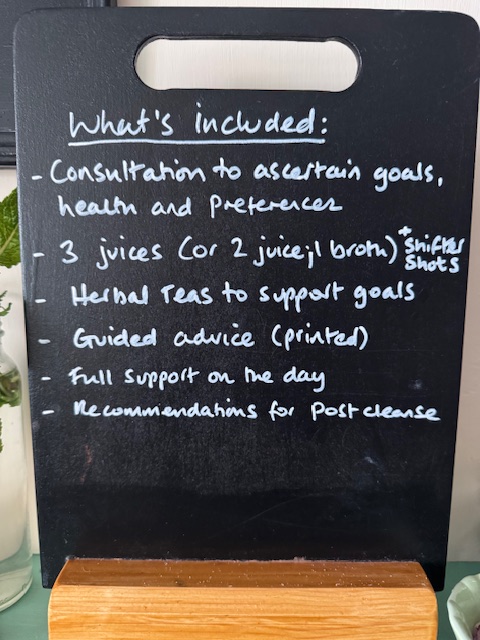 What's included:
- Consultation to ascertain goals,
health and preferences
- 3 juices (or 2 juice,1 broth) + Shifter
Shots
- Herbal Teas to support goals
- Guided advice (printed)
- Full support on the day
- Recommendations for post cleanse